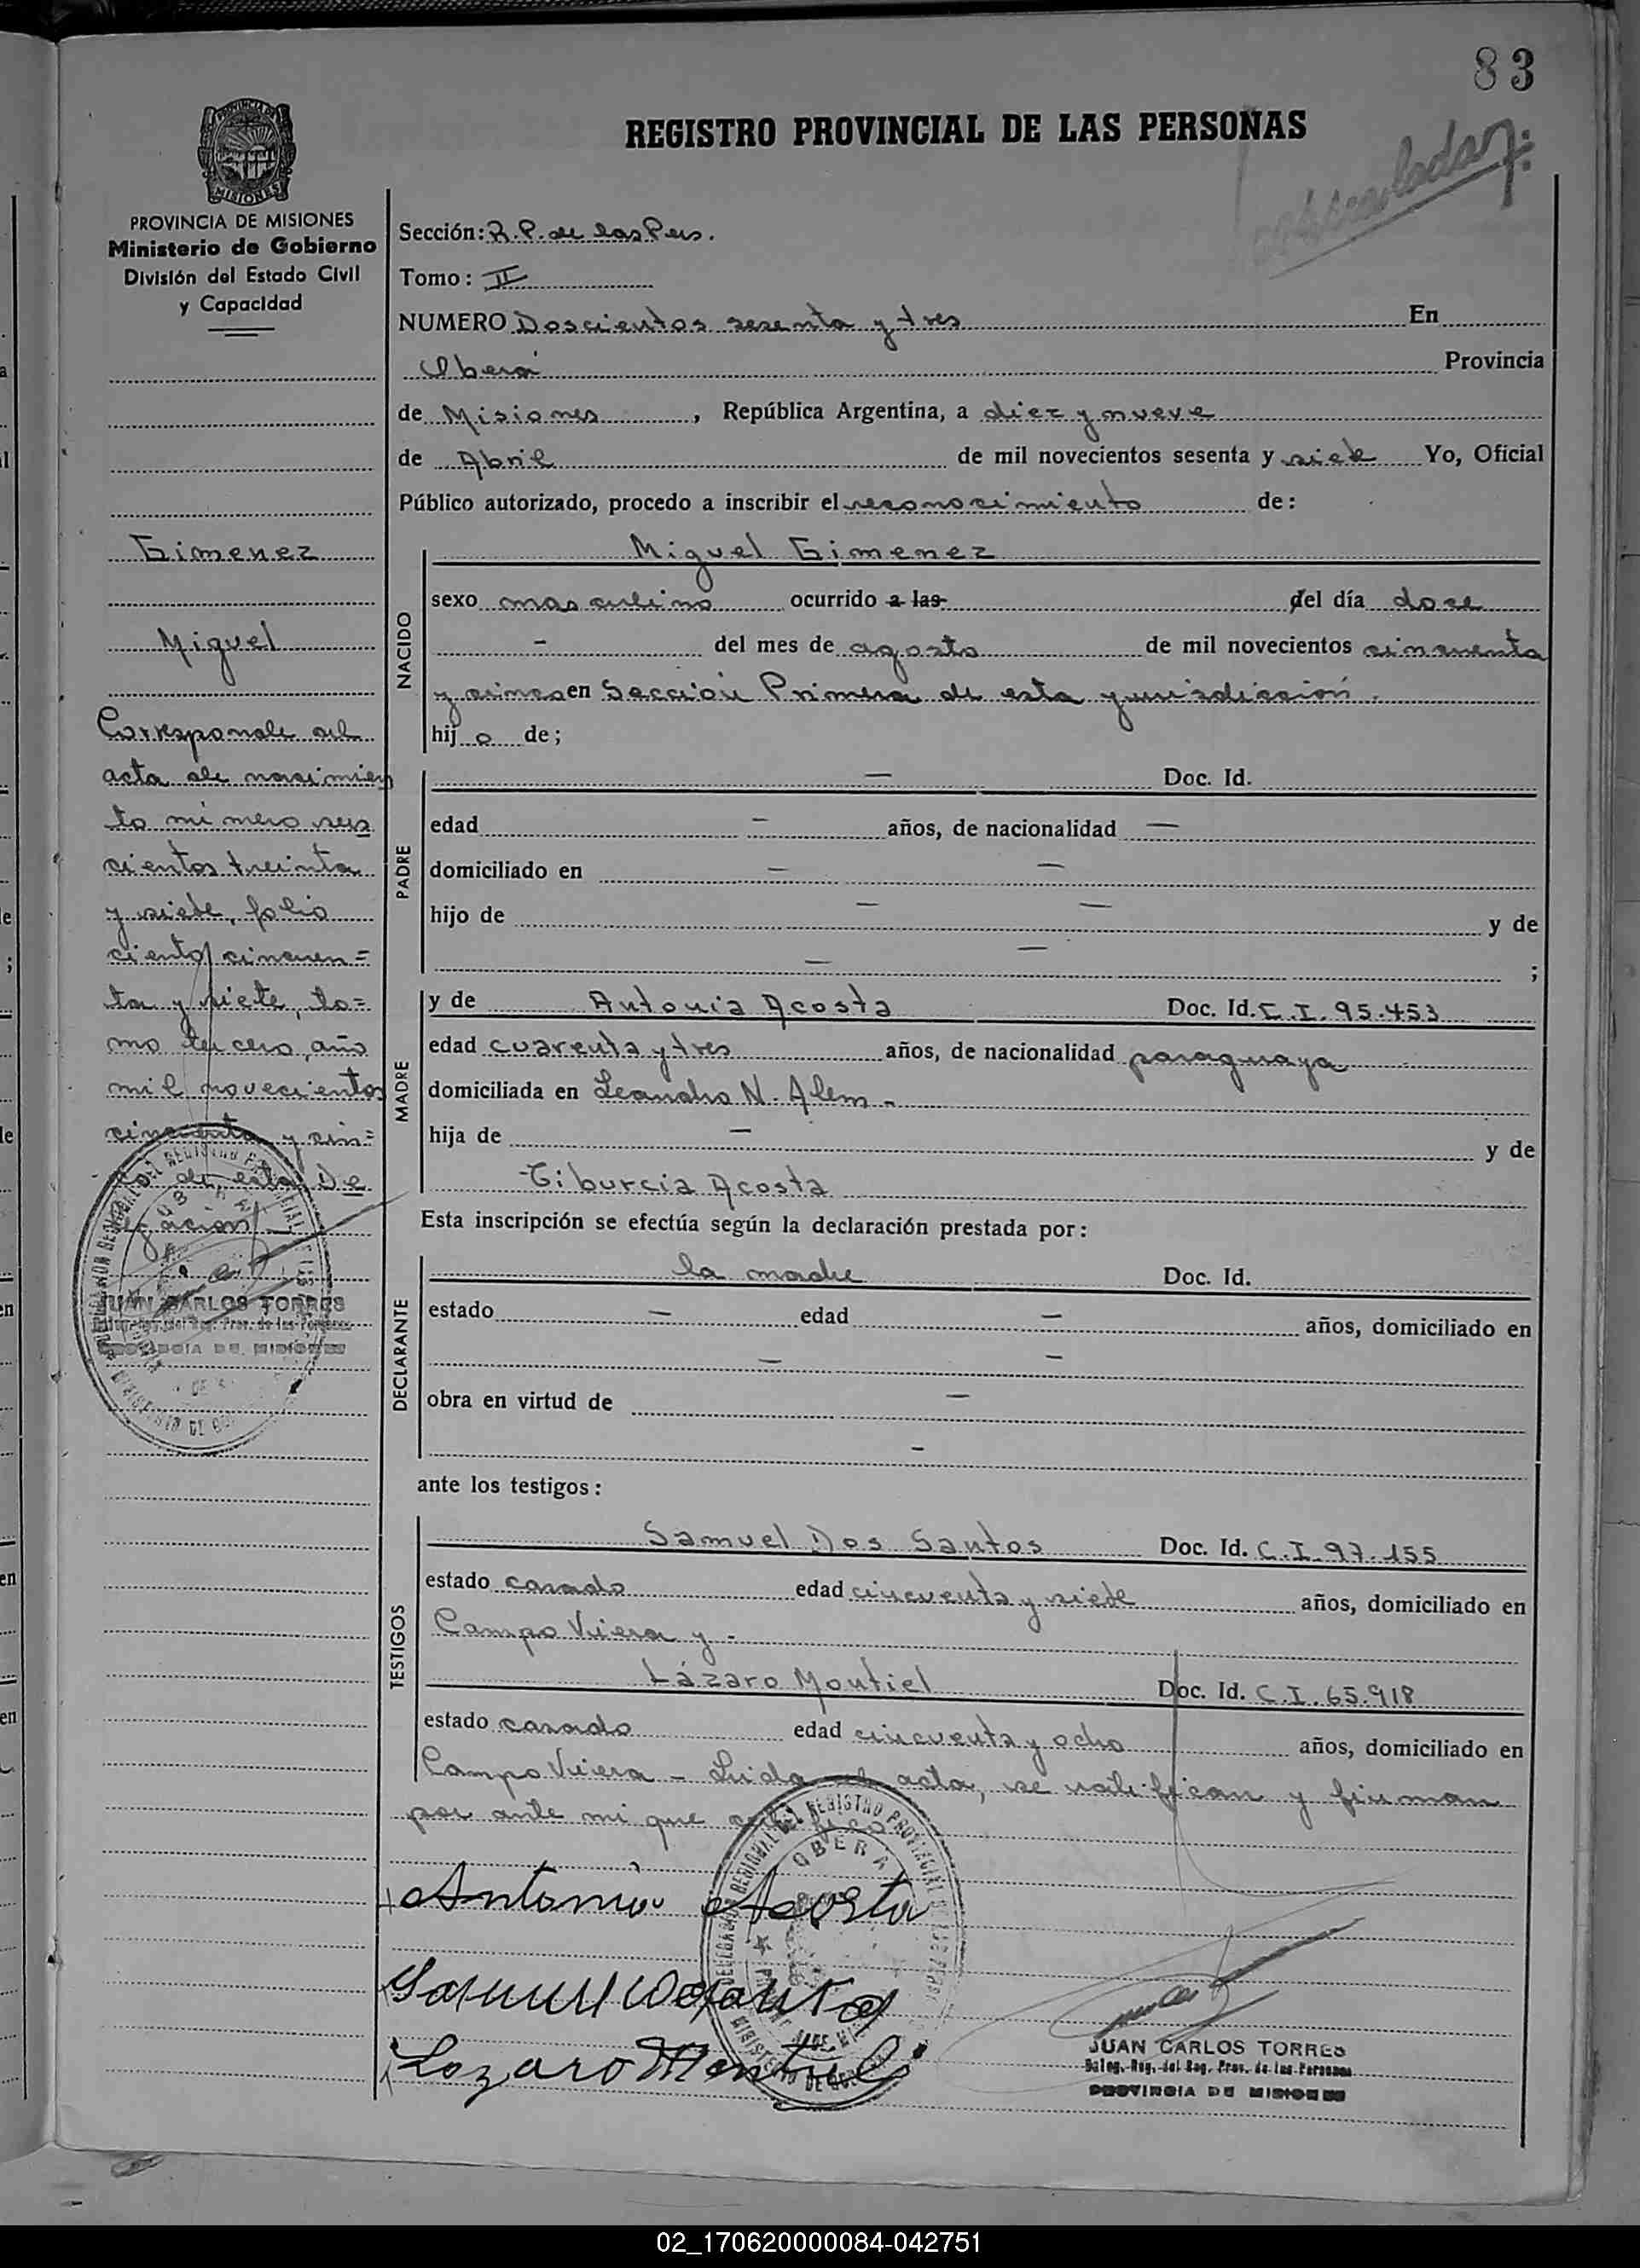 83
REGISTRO PROVINCIAL DE LAS PERSONAS
PROVINCIA DE MISIONES
Ministerio de Gobierno
División del Estado Civil
y Capacidad
Gimenez
Miguel
Corresponde al
acta de nacimien
to número seis
cientos treinta
y siete, folio
ciento cincuen=
ta y siete, to=
mo tercero, año
mil novecientos
cincuenta y cin=
co de esta De
legacion
JUAN CARLOS TORRES
Deleg. Reg. del Reg. Prov. de las Personas
PROVINCIA DE MISIONES
Sección: R.P. de las Pers.
Tomo: II
NUMERO Doscientos sesenta y tres En
Oberá Provincia
de Misiones, República Argentina, a diez y nueve
de Abril de mil novecientos sesenta y siete Yo, Oficial
Público autorizado, procedo a inscribir el reconocimiento de:
NACIDO
Miguel Gimenez
sexo masculino ocurrido a las del día doce
- del mes de agosto de mil novecientos cincuenta
y cinco en Sección Primera de esta jurisdicción.
hij o de;
PADRE
— Doc. Id.
edad — años, de nacionalidad —
domiciliado en — —
hijo de — — y de
— — ;
MADRE
y de Antonia Acosta Doc. Id. C.I. 95.453
edad cuarenta y tres años, de nacionalidad paraguaya
domiciliada en Leandro N. Alem -
hija de — y de
Tiburcia Acosta
Esta inscripción se efectúa según la declaración prestada por:
DECLARANTE
la madre Doc. Id.
estado — edad — años, domiciliado en
— —
obra en virtud de —
-
ante los testigos:
TESTIGOS
Samuel Dos Santos Doc. Id. C.I. 97.155
estado casado edad cincuenta y siete años, domiciliado en
Campo Viera y -
Lázaro Montiel Doc. Id. C.I. 65.918
estado casado edad cincuenta y ocho años, domiciliado en
Campo Viera - Leida el acta, se ratifican y firman
por ante mi que certifico
Antonia Acosta
Lozaro Montiel
OBERA
JUAN CARLOS TORRES
Deleg. Reg. del Reg. Prov. de las Personas
PROVINCIA DE MISIONES
02_170620000084-042751